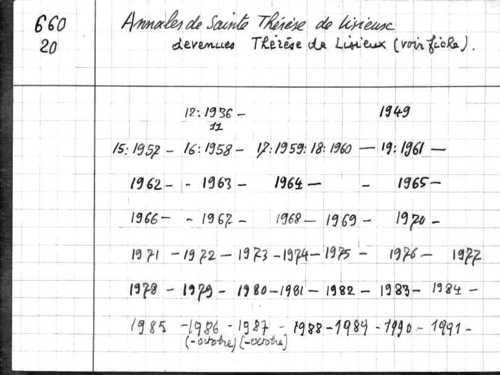 660
20
Annales de Sainte Thérèse de Lisieux
devenues Thérèse de Lisieux (voir fiche).
12:1936- 1949
11
15:1957- 16:1958- 17:1959:18:1960- 19:1961-
1962- - 1963- 1964- - 1965-
1966- - 1967- 1968- 1969- 1970-
1971 -1972 -1973 -1974-1975- 1976- 1977
1978 -1979- 1980-1981- 1982 -1983- 1984-
1985 -1986 -1987 -1988-1989 -1990 -1991-
(-octobre) [-octobre]